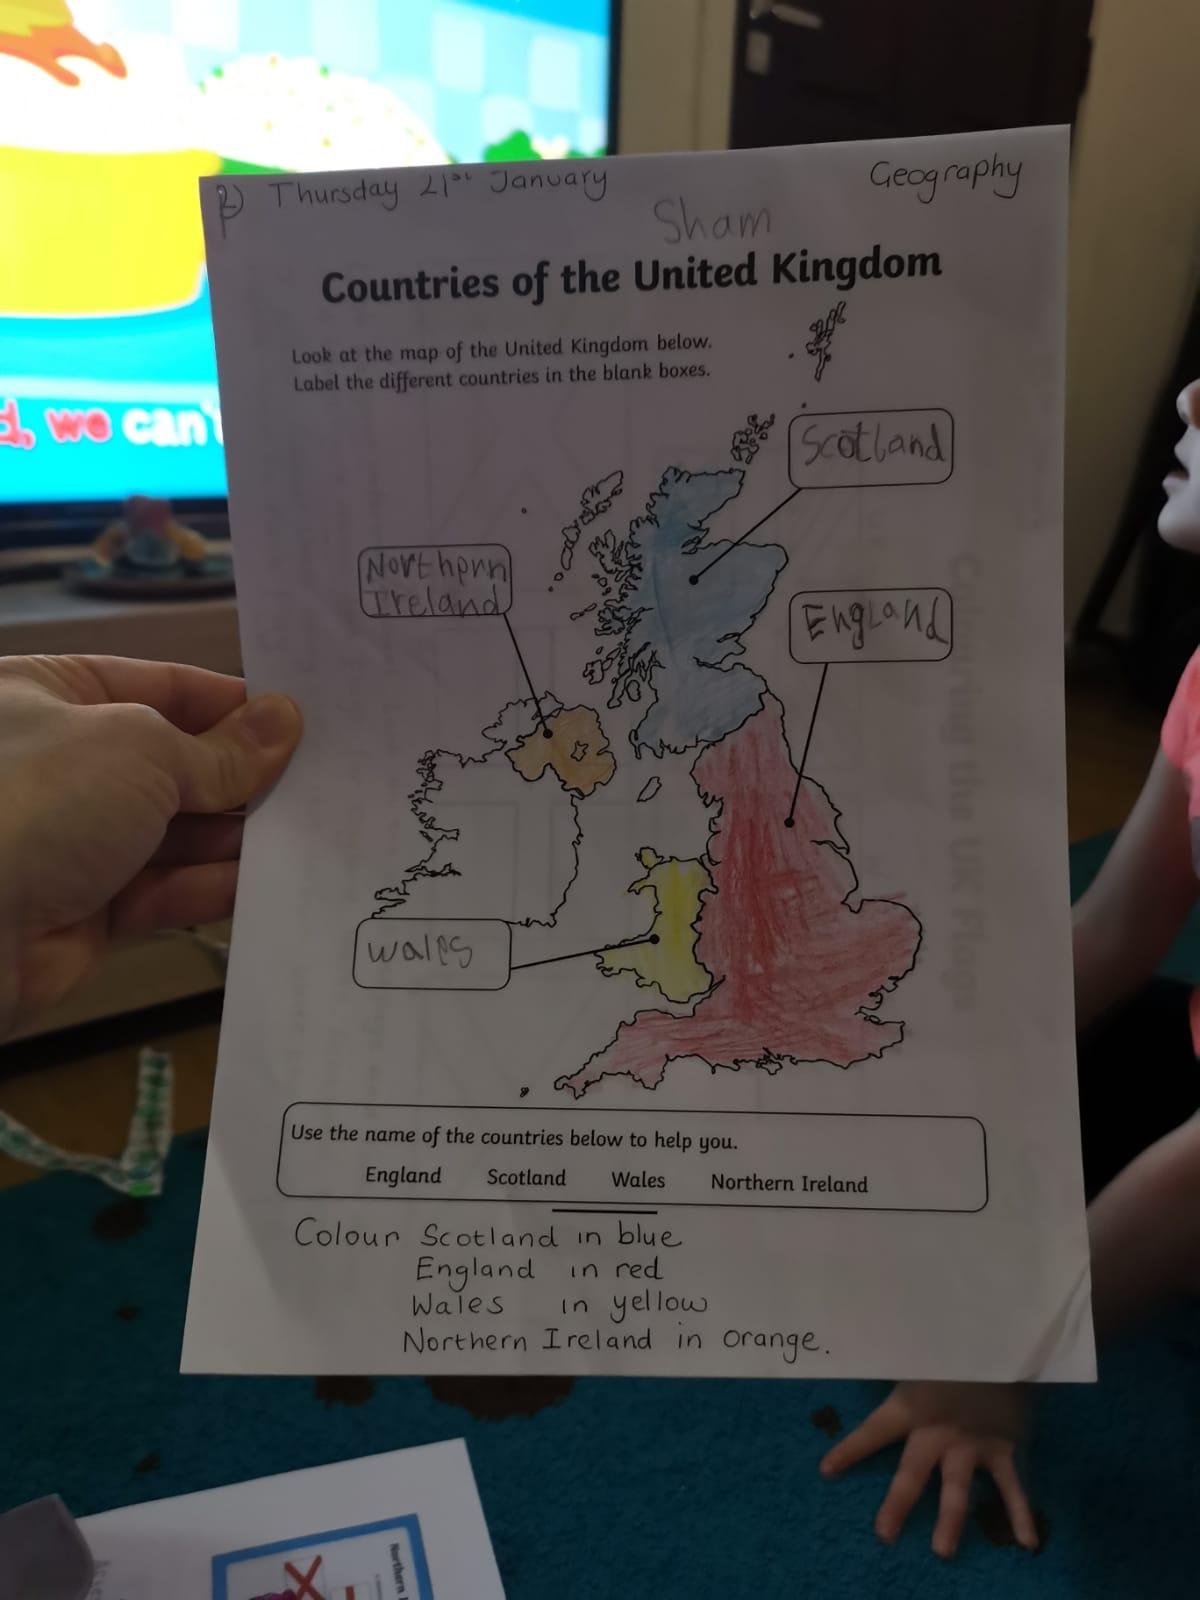 d, we can't
P) Thursday 21st January
Geography
Sham
Countries of the United Kingdom
Look at the map of the United Kingdom below.
Label the different countries in the blank boxes.
Scotland
Northern
Ireland
England
Wales
Use the name of the countries below to help you.
England Scotland Wales Northern Ireland
Colour Scotland in blue
England in red
Wales in yellow
Northern Ireland in orange.
Colouring the UK Flags
Northern